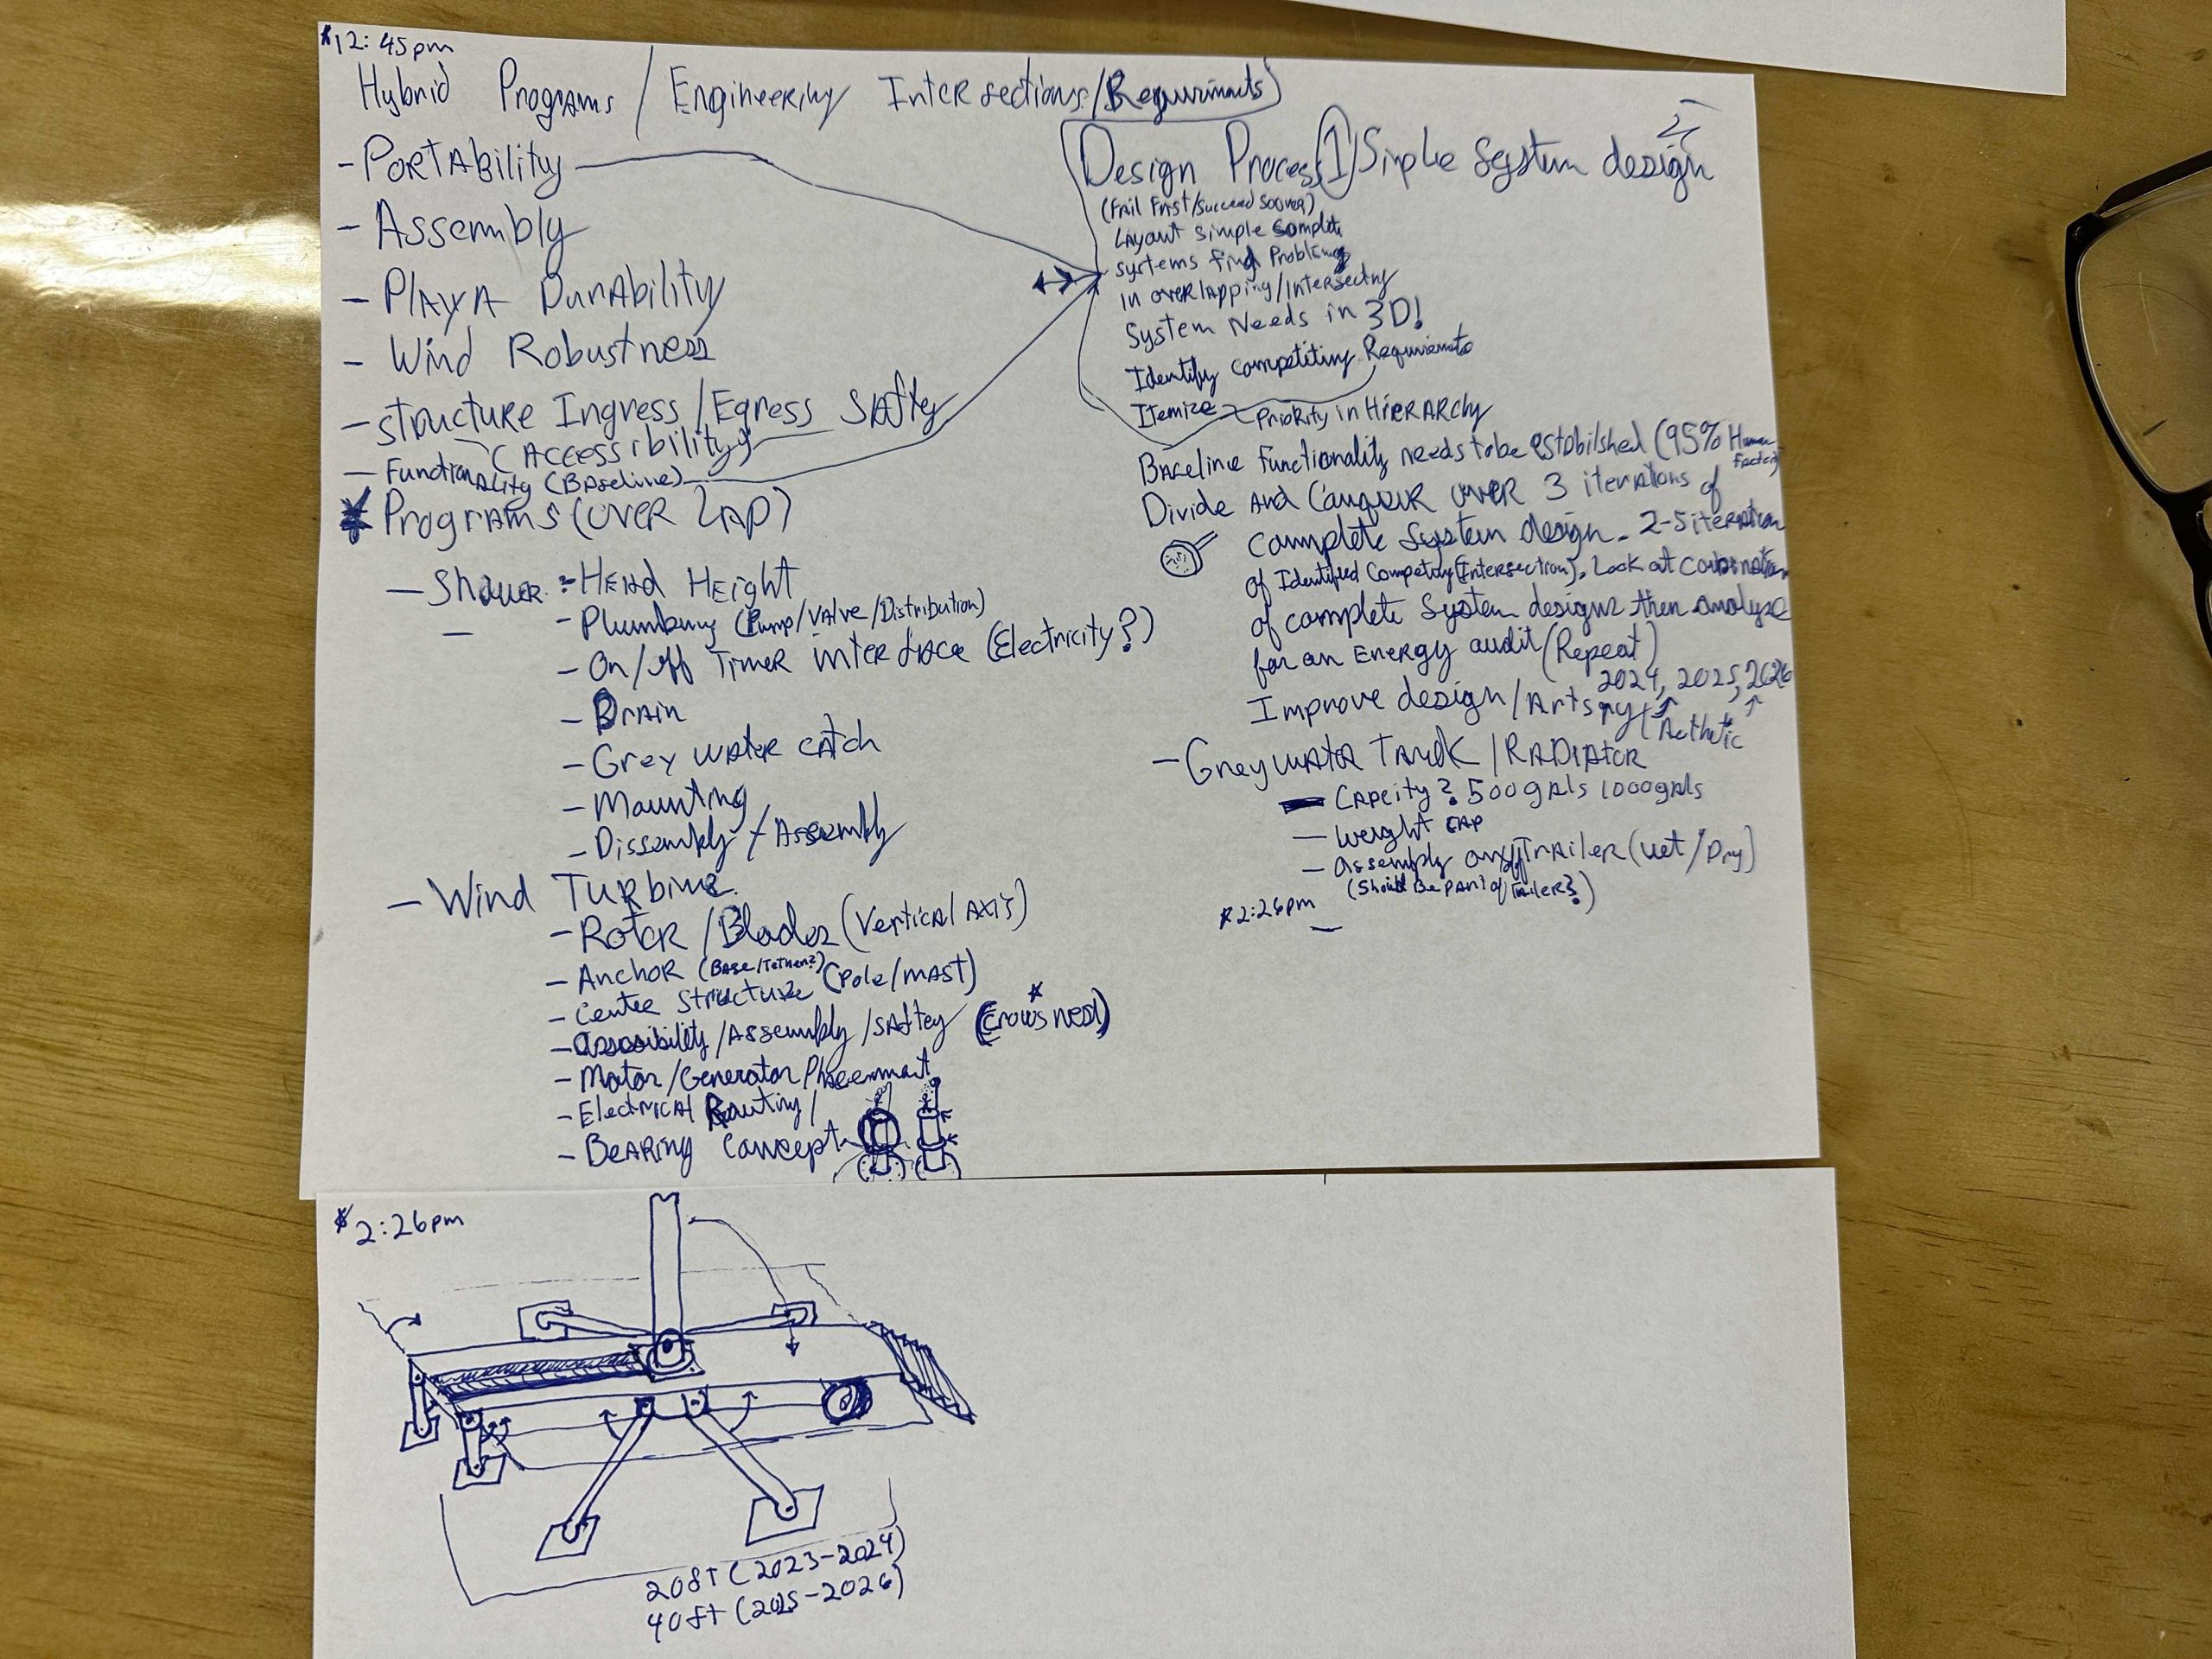 *12:45pm
Hybrid Programs / Engineering Intersections/Requirments
- Portability
- Assembly
- Playa Durability
- Wind Robustness
- Structure Ingress/Egress Safty
(Accessibility)
- Functionality (Baseline)
* Programs (Over Lap)
- Shower :- Head Height
- Plumbing (Pump/Valve/Distribution)
- On/off Timer interface (Electricity?)
- Drain
- Grey water catch
- Mounting
- Dissembly / Assembly
- Wind Turbine
- Rotor / Blades (Vertical Axis)
- Anchor (Base/Tether?)
- Center Structure (Pole/mast)
- Assosibility/Assembly/Saftey (Crows nest)
*
- Motor/Generator Placenment
- Electrical Routing/
- Bearing Concept
Design Process 1 Simple System design
(Fail First/Succeed Sooner)
Layout simple complete
systems find Problems
in overlapping/intersecting
System Needs in 3D!
Identify Competiting Requirements
Itemize Priority in Hierarchy
Baseline Functionality needs to be estobilshed (95% Human Factors)
Divide and Conquer over 3 iterations of
complete System design. 2-5 iteration
of Identified Competing (Intersection). Look at combination
of complete System designs then analyze
for an Energy audit (Repeat)
2024, 2025, 2026
Improve design/Artsy/(Asthetic
- Greywater Tank / Radiator
- Capcity? 500gals 1000gals
- Weight cap
- Assembly on/off Trailer (Wet/Dry)
(Should Be part of Trailer?)
*2:26pm
-
*2:26pm
20ft (2023-2024)
40ft (2025-2026)